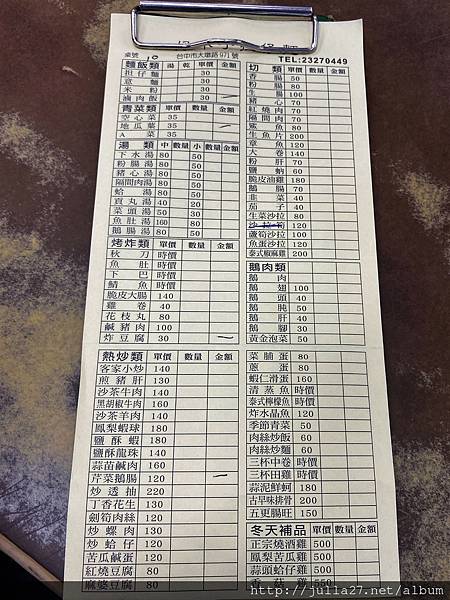 桌號 10
台中市大墩路971號
TEL:23270449
麵飯類 湯 乾 單價 數量 金額
担仔麵 30
意麵 30
米粉 30
滷肉飯 30 一
青菜類 單價 數量 金額
空心菜 35
地瓜葉 35 一
A菜 35
湯類 中 數量 小 數量 金額
下水湯 80 50
粉腸湯 80 50
豬心湯 80 50
隔間肉湯 80 50
蛤湯 80 50
貢丸湯 40 20
菜頭湯 50 30
魚肚湯 160 80
鵝腸湯 80 50
烤炸類 單價 數量 金額
秋刀 時價
魚肚 時價
下巴 時價
鯖魚 時價
脆皮大腸 140
雞卷 40
花枝丸 80
鹹豬肉 100
炸豆腐 30 一
熱炒類 單價 數量 金額
客家小炒 140
煎豬肝 130
沙茶牛肉 140
黑胡椒牛肉 160
沙茶羊肉 140
鳳梨蝦球 180
鹽酥蝦 180
鹽酥龍珠 140
蒜苗鹹肉 160
芹菜鵝腸 120 一
炒透抽 220
丁香花生 130
劍筍肉絲 120
炒螺肉 130
炒蛤仔 120
苦瓜鹹蛋 120
紅燒豆腐 80
麻婆豆腐 80
切類 單價 數量 金額
香腸 50
粉腸 80
生腸 100
豬心 70
紅燒肉 70
隔間肉 70
鯊魚 80
生魚片 200
章魚 120
大卷 140
粉肝 70
鹽蚋 60
脆皮油雞 180
鵝腸 70
韭菜 40
茄子 40
生菜沙拉 80
沙拉筍 120
蘆筍沙拉 100
魚蛋沙拉 120
泰式椒麻雞 200
鵝肉類 單價 數量 金額
鵝肉
鵝翅 100
鵝頭 40
鵝肫 50
鵝肝 40
鵝腳 30
黃金泡菜 50
菜脯蛋 80
蔥蛋 80
蝦仁滑蛋 160
清蒸魚 時價
泰式檸檬魚 時價
炸水晶魚 120
季節青菜 50
肉絲炒飯 60
肉絲炒麵 60
三杯中卷 時價
三杯田雞 時價
蒜泥鮮蚵 180
古早味排骨 200
五更腸旺 150
冬天補品 單價 數量 金額
正宗燒酒雞 500
鳳梨苦瓜雞 500
蒜頭蛤仔雞 500
香菇雞 550
http://julla27.net/album